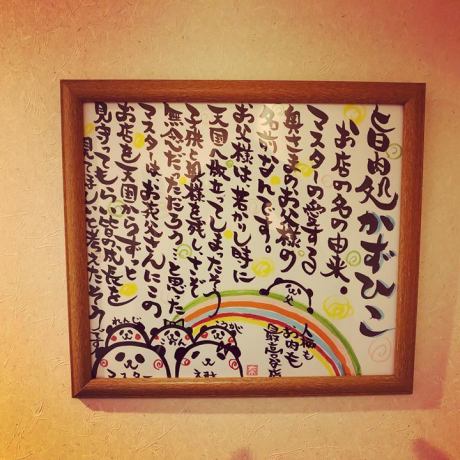 旨肉処かずひこ
お店の名の由来・
マスターの愛する
奥さまのお父様の
名前なんです。
お父様は、若かりし時に
天国へ旅立ってしまったそう
子供と奥様を残しさぞ
無念だっただろう と思った
マスターは、お義父さんにこの
お店を天国からずっと
見守ってもらい皆の成長を
見て欲しいと考えたそう
人柄も
お肉も
最高
父
れんじ
マスター